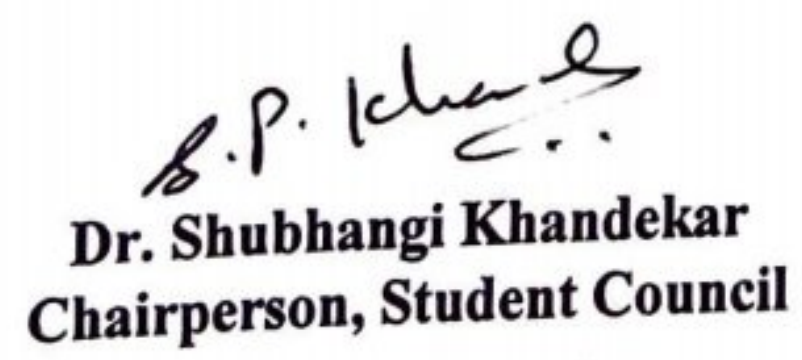 S.P. Khande
Dr. Shubhangi Khandekar
Chairperson, Student Council